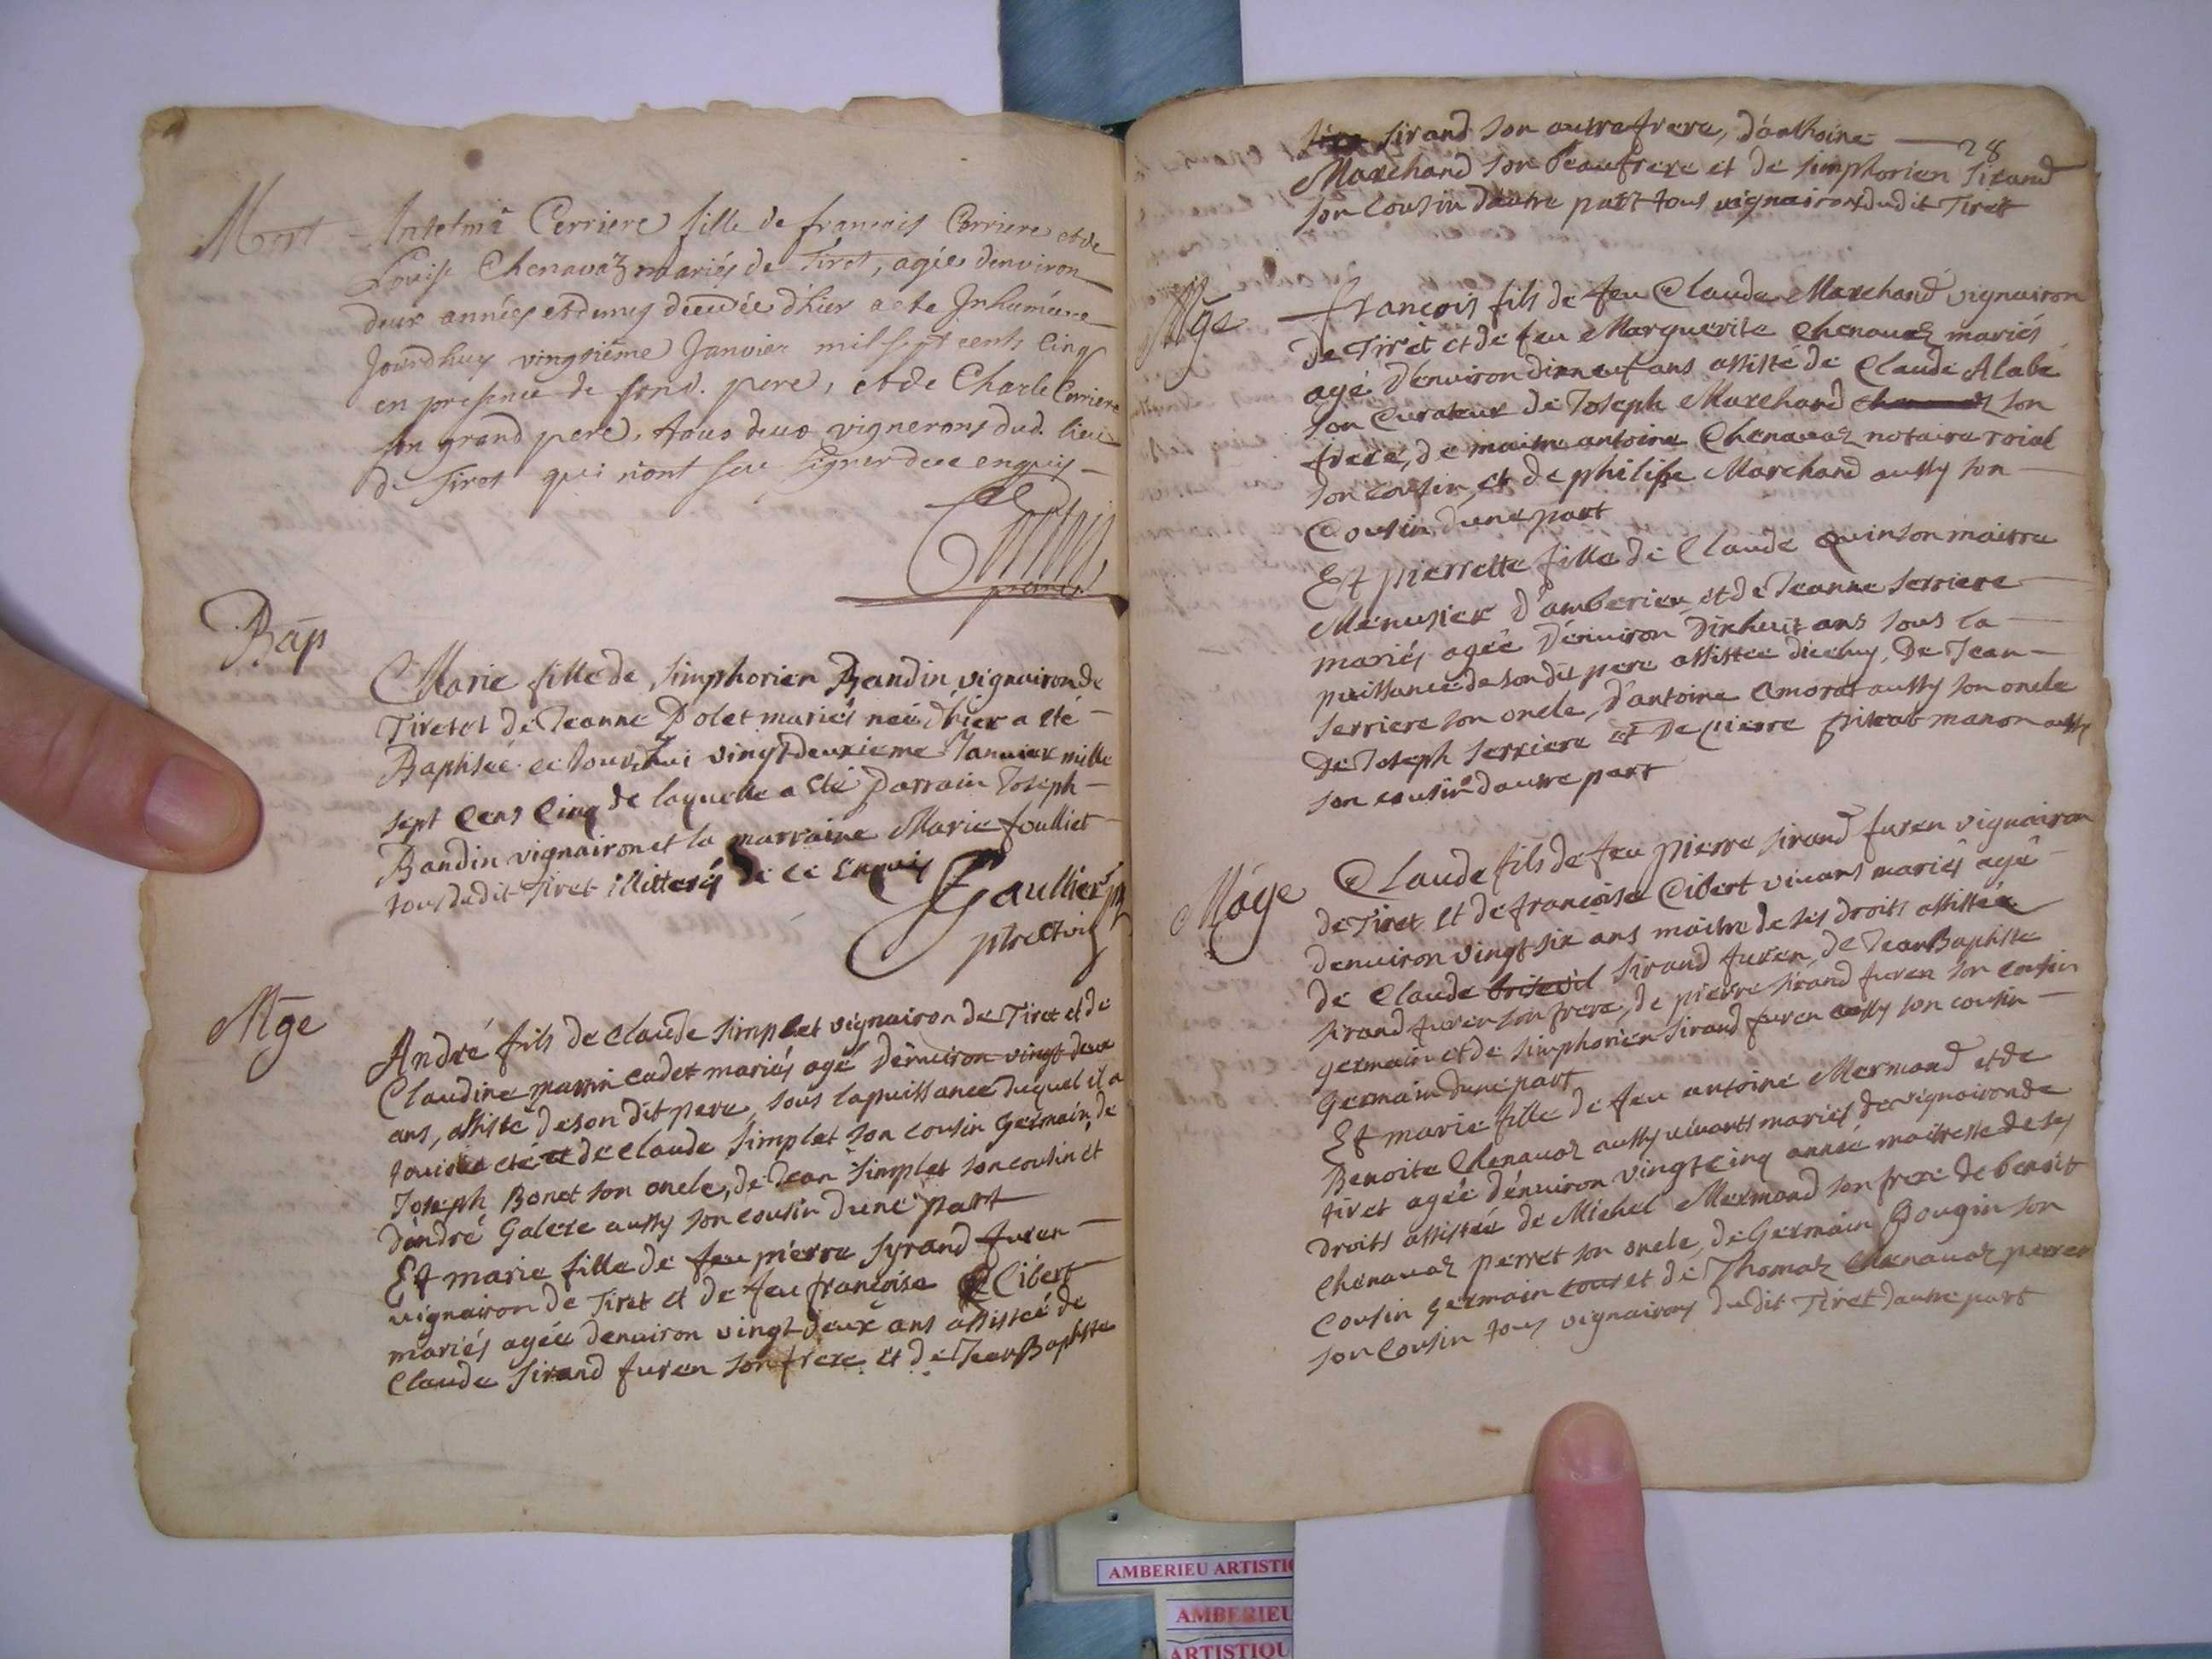 Mort - Anselma Cerriere fille de francois Cerriere et de
Louise Chenavaz mariés de Tiret, agée denviron
deux années et demy decedée d'hier a ete Inhumée ce
Jourdhuy vingtième Janvier mil sept cents Cinq
en presence de sond. pere, et de Charle Cerriere
son grand pere, tous deux vignerons dud. lieu
de Tiret qui n'ont seu signer de ce enquis
Bap
Marie fille de simphorien Bandin vignairon de
Tiret et de Jeanne Polet mariés neé d'hier a eté
Baptisée ce Jourdhui vingtdeuxieme Janvier mille
sept Cens Cinq de laquelle a eté parrain Joseph
Bandin vignairon et la marraine Marie foulliet
tous dudit Tiret illitterés de ce Enquis
Gaullier
ptre et vic
Mge
André fils de Claude simplet vignairon de Tiret et de
Claudine marrin cadet mariés agé dénuiron vingt deux
ans, assisté de son dit pere, sous la puissance duquel il a
et de Claude simplet son cousin germain, de
Joseph Bonet son oncle, de Jean simplet son cousin et
d'andré Galere aussy son cousin dune part
Et marie fille de feu pierre syrand furen
vignairon de Tiret et de feu francoise Cibert
mariés agée denuiron vingt deux ans assisteé de
Claude sirand furen son frere et de Jean Baptiste
sirand son autre frere, d'anthoine 28
Marchand son beaufrere et de simphorien sirand
son cousin dautre part tous vignairons dudit Tiret
Mge
francois fils de feu Claude Marchand vignairon
de Tiret et de feu Marguerite Chenauaz mariés
agé d'enuiron dixneuf ans assisté de Claude Alabe
son Curateur de Joseph Marchand son
frere, de maitre antoine Chenauaz notaire roial
son cousin, et de philipe Marchand aussy son
Cousin dune part
Et pierrette fille de Claude Quinson maitre
Menusier d'amberieu et de Jeanne serriere
mariés agée d'énuiron dixhuit ans sous la
puissance de son dit pere assistée diceluy, de Jean
serriere son oncle, d'antoine Amorat aussy son oncle
de Joseph serriere et de pierre manon aussy
son cousin dautre part
Mage
Claude fils de feu pierre sirand furen vignairon
de Tiret et de francoise Cibert viuans mariés agé
denuiron vingt six ans maitre de ses droits assistée
de Claude sirand furen, de Jean Baptiste
sirand furen son frere, de pierre sirand furen son cousin
germain et de simphorien sirand furen aussy son cousin
Germain dune part
Et marie fille de feu antoine Mermand et de
Benoite Chenauaz aussy uiuants mariés de vignairon de
tiret agée dénuiron vingtcinq année maitresse de ses
droits assistée de Michel Mermand son frere de benoit
Chenauaz perret son oncle, de Germain Gougin son
Cousin germain et de Thomaz Chenauaz perret
son Cousin tous vignairons du dit Tiret dautre part
AMBERIEU ARTISTIQ
AMBERIEU
ARTISTIQU